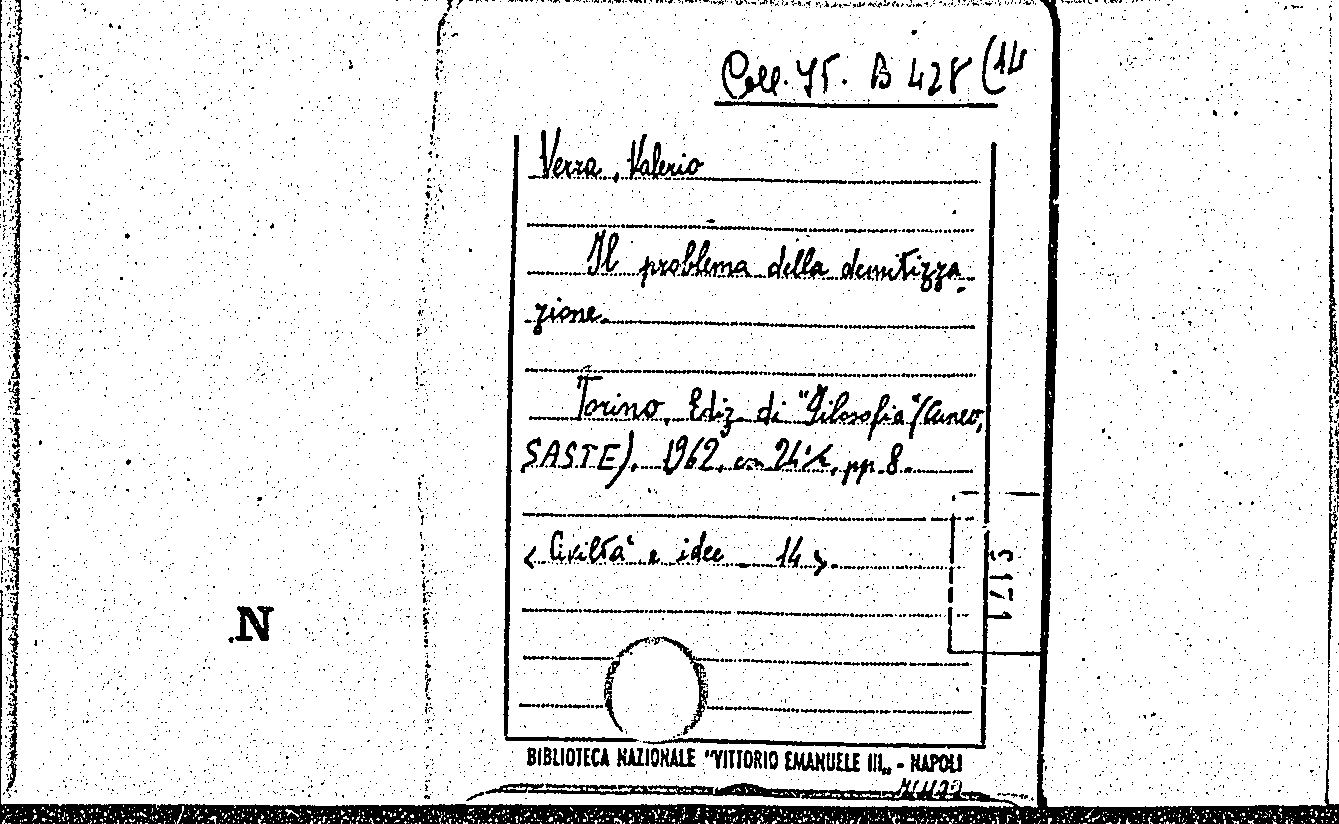 Coll. 75. B 428 (14
Verra, Valerio
Il problema della demitizza-
zione.
Torino, Ediz. di "Filosofia" (Cuneo,
SASTE), 1962, cm 24½, pp. 8.
< Civiltà e idee - 14 >.
S 171
N
BIBLIOTECA NAZIONALE "VITTORIO EMANUELE III„ - NAPOLI